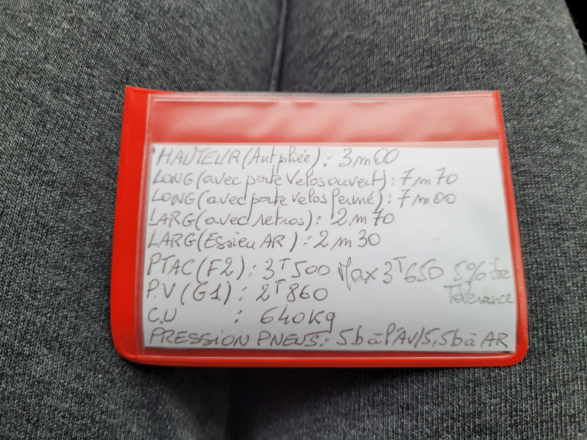 HAUTEUR (Ant pliée) : 3m00
LONG (avec porte Velos ouvert) : 7m70
LONG (avec porte velos fermé) : 7m00
LARG (avec retros) : 2m70
LARG (Essieu AR) : 2m30
PTAC (F2) : 3T500 Max 3T650 5% de Tolerance
P.V (G1) : 2T860
C.U : 640Kg
PRESSION PNEUS : 5b à l'AV/5,5b à AR